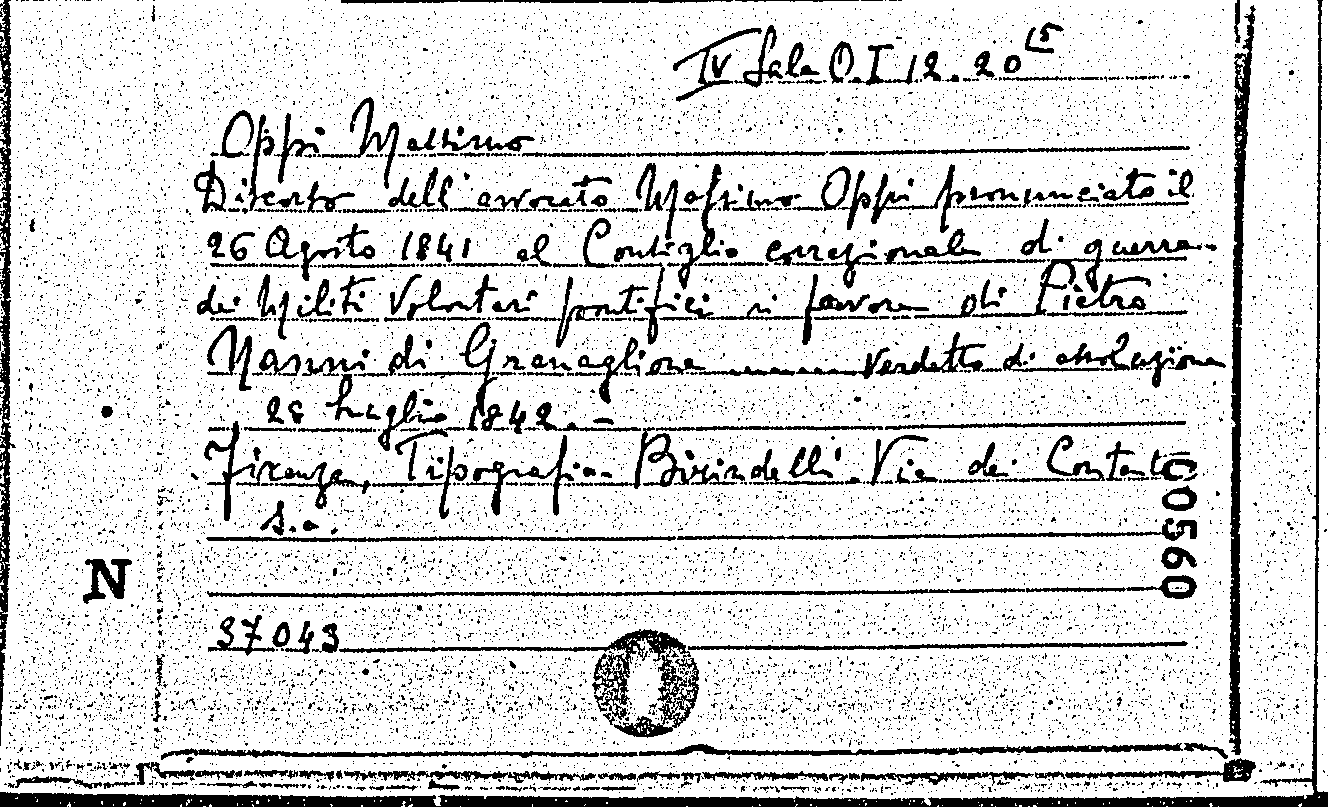 IV Sala O.I 12.20 15
Oppi Massimo
Discorso dell'avvocato Massimo Oppi pronunciato il
26 Agosto 1841 al Consiglio correzionale di guerra
dei Militi Volontari pontifici in favore di Pietro
Nanni di Granaglione verdetto di assoluzione
28 luglio 1842. -
Firenze, Tipografia Birindelli. Via dei
s.a.
00560
N
37043